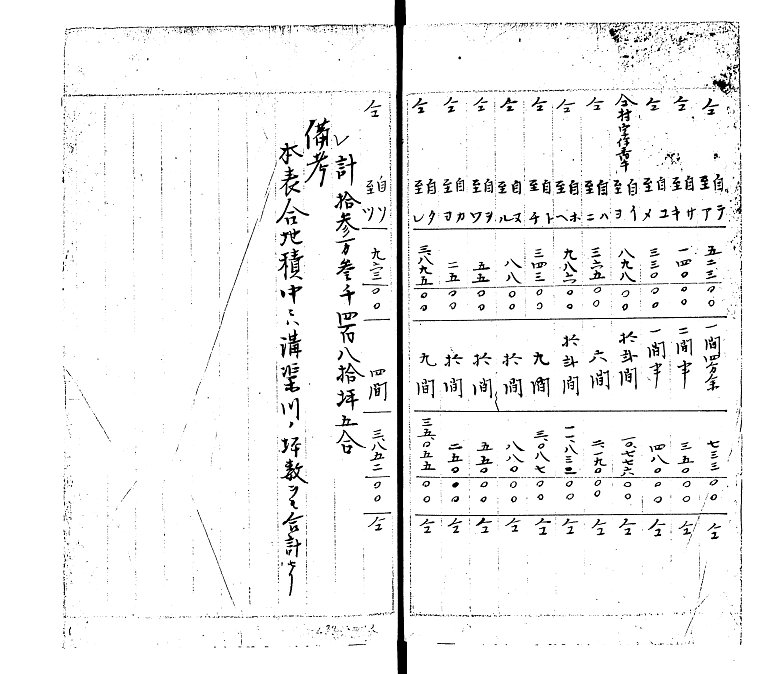 仝 自テ至ア 五二三〇〇 一間四分余 七三三〇〇 仝
仝 自サ至キ 一四〇〇〇 二間半 三五〇〇〇 仝
仝 自ユ至メ 三三〇〇〇 一間半 四八〇〇〇 仝
仝村字 自イ至ヨ 八九八〇〇 拾弐間 一〇、七七六〇〇 仝
仝 自ハ至ニ 三六五〇〇 六間 二、一九〇〇〇 仝
仝 自ホ至ヘ 九八六〇〇 拾弐間 一一、八三二〇〇 仝
仝 自ト至チ 三四三〇〇 九間 三、〇八七〇〇 仝
仝 自ヌ至ル 八八〇〇 拾間 八八〇〇〇 仝
仝 自ヲ至ワ 五五〇〇 拾間 五五〇〇〇 仝
仝 自カ至ヨ 二五〇〇 拾間 二五〇〇〇 仝
仝 自タ至レ 三、八九五〇〇 九間 三五、〇五五〇〇 仝
仝 自ソ至ツ 九六三〇〇 四間 三、八五二〇〇 仝
計 拾参万参千四百八拾坪五合
備考
本表合地積中ニハ溝渠川ノ坪数ヲモ合計セリ